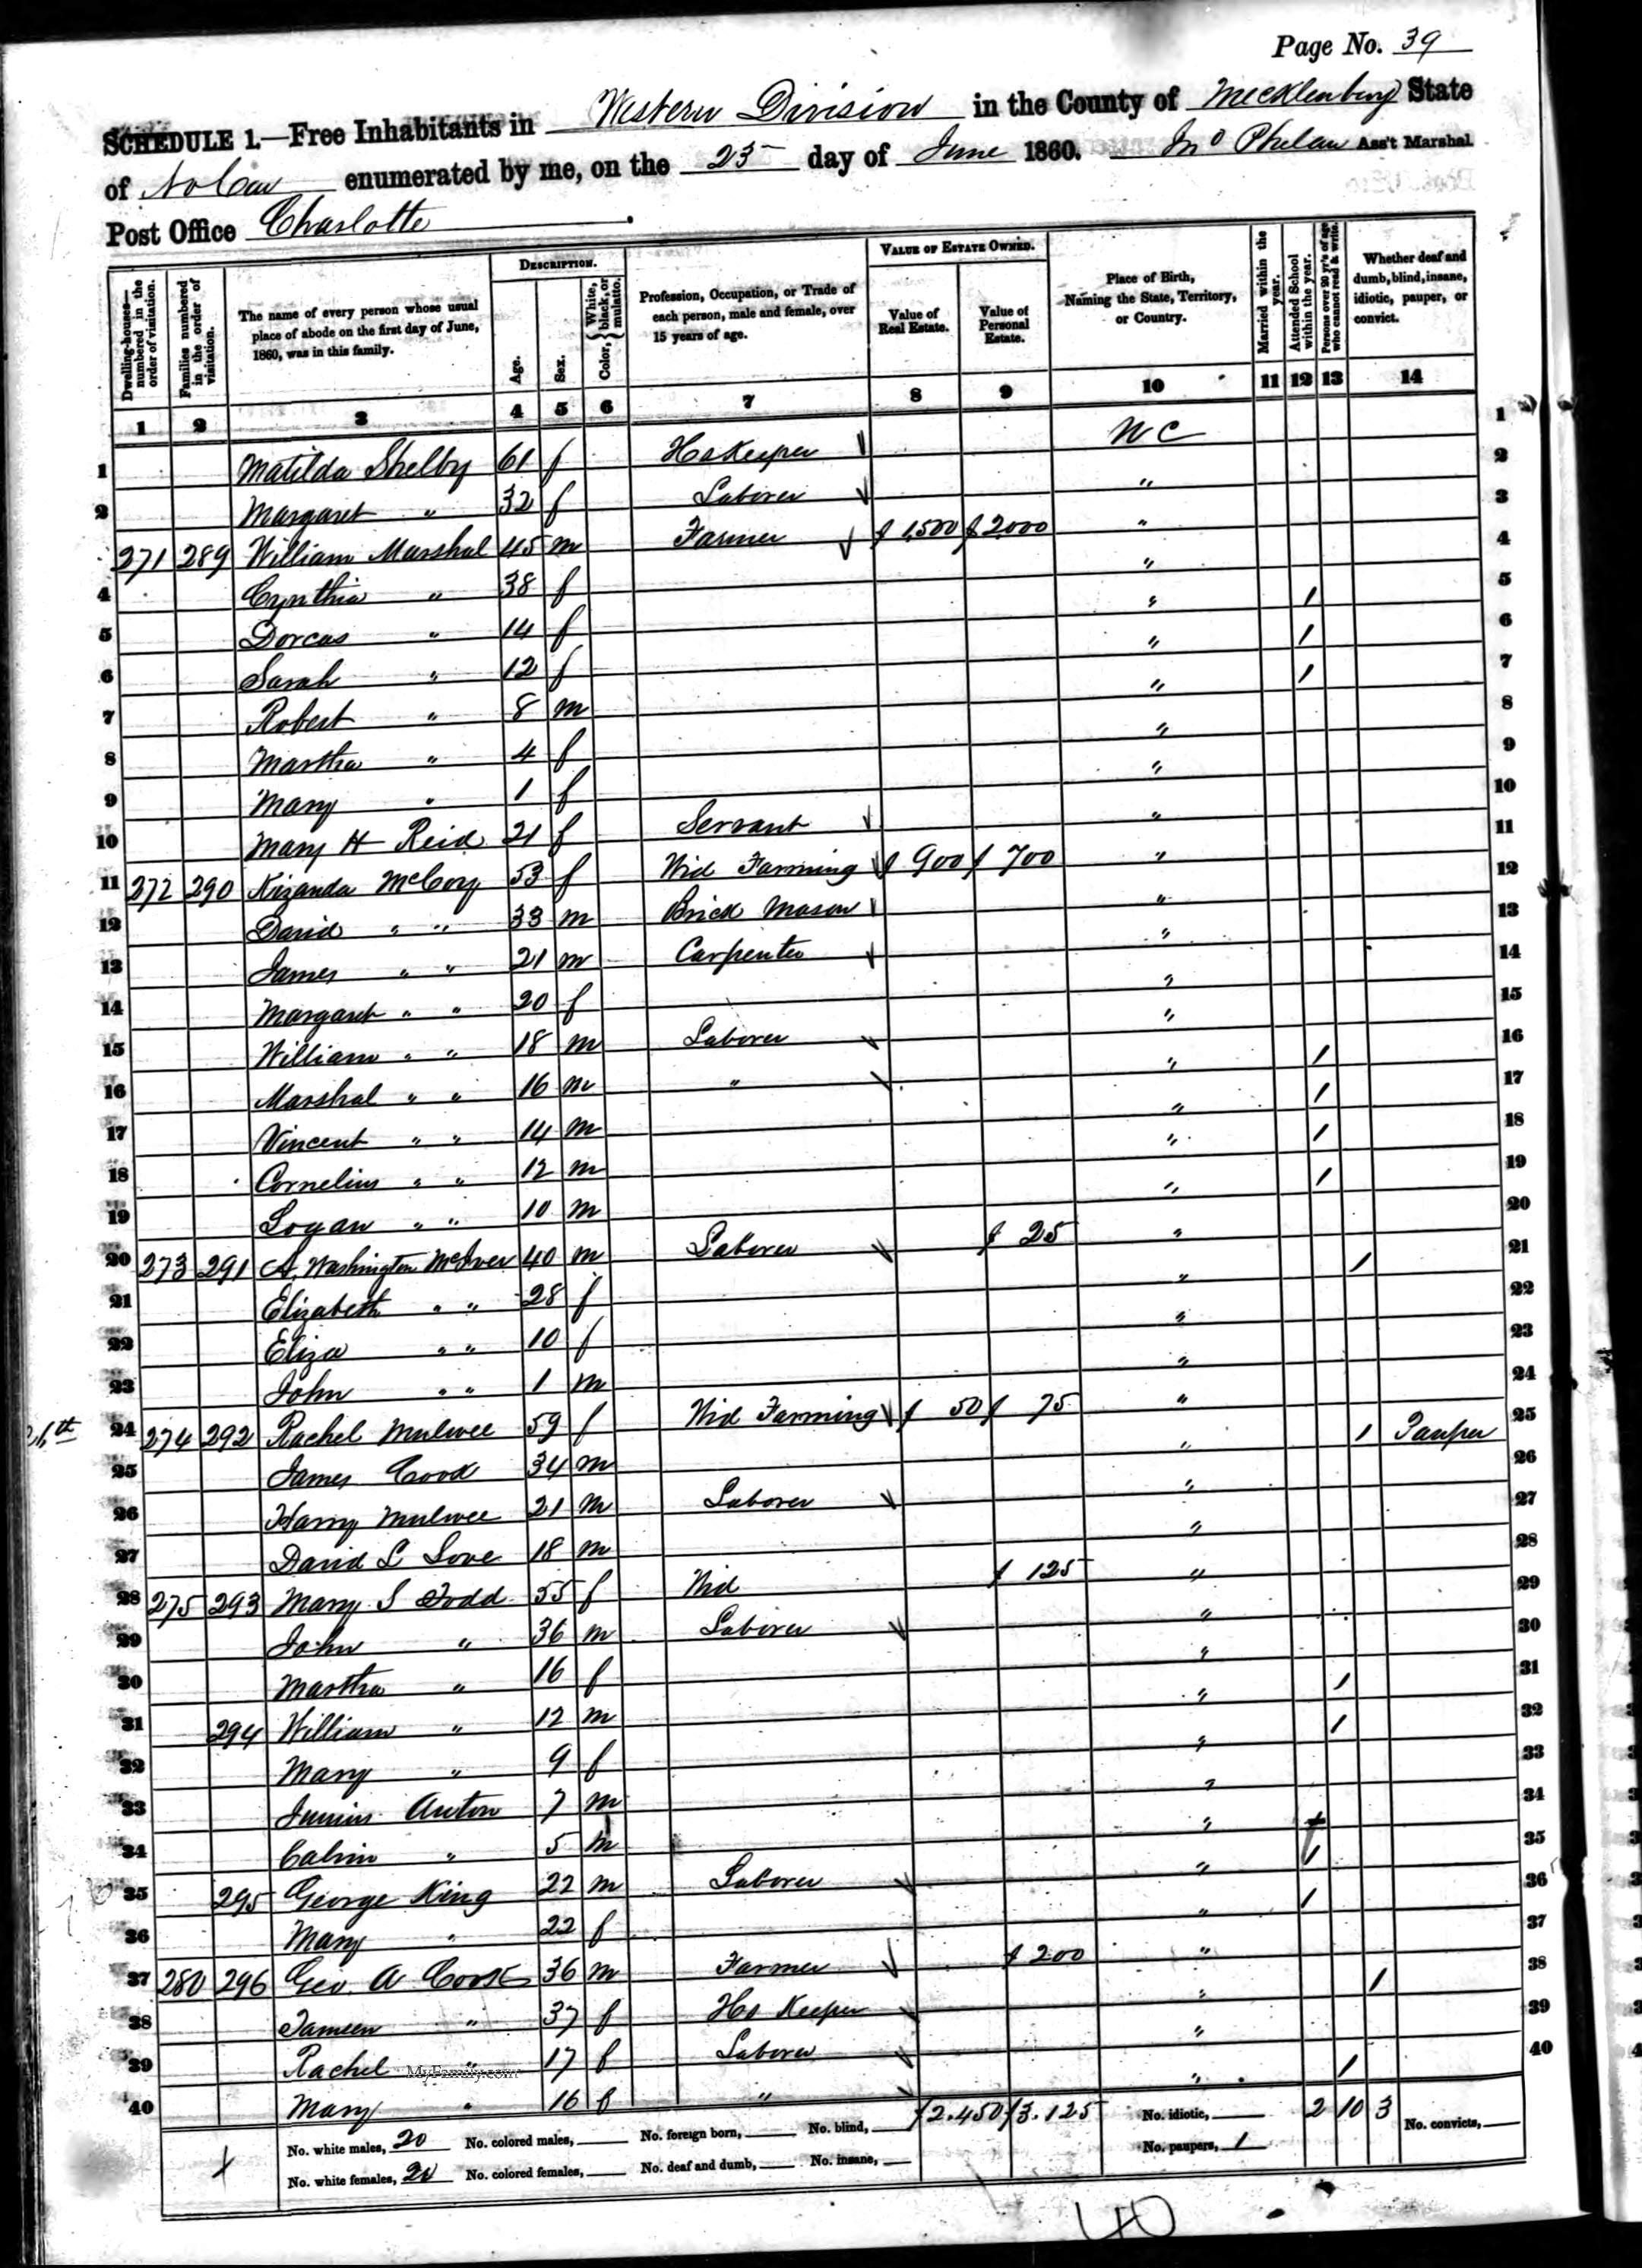 Page No. 39
SCHEDULE 1.—Free Inhabitants in Western Division in the County of Mecklenburg State
of No Car enumerated by me, on the 25 day of June 1860. Jno Phelan Ass't Marshal
Post Office Charlotte.
DESCRIPTION. VALUE OF ESTATE OWNED.
Dwelling-houses—numbered in the order of visitation. Families numbered in the order of visitation. The name of every person whose usual place of abode on the first day of June, 1860, was in this family. Age. Sex. Color, { White, black, or mulatto. Profession, Occupation, or Trade of each person, male and female, over 15 years of age. Value of Real Estate. Value of Personal Estate. Place of Birth, Naming the State, Territory, or Country. Married within the year. Attended School within the year. Persons over 20 y'rs of age who cannot read & write. Whether deaf and dumb, blind, insane, idiotic, pauper, or convict.
1 2 3 4 5 6 7 8 9 10 11 12 13 14
1 Matilda Shelby 61 f HsKeeper N C 1
2 Margaret " 32 f Laborer " 2
271 289 William Marshal 45 m Farmer $ 1,500 $ 2000 " 3
4 Cynthia " 38 f " 4
5 Dorcas " 14 f " / 5
6 Sarah " 12 f " / 6
7 Robert " 8 m " / 7
8 Martha " 4 f " 8
9 Mary " 1 f " 9
10 Mary H Reid 21 f Servant " 10
11 272 290 53 f Wid Farming $ 900 $ 700 " 11
12 David " " 33 m Brick Mason " 12
13 James " " 21 m Carpenter " 13
14 Margaret " " 20 f " 14
15 William " " 18 m Laborer " 15
16 Marshal " " 16 m " " / 16
17 Vincent " " 14 m " / 17
18 Cornelius " " 12 m " / 18
19 Logan " " 10 m " / 19
20 273 291 A. Washington 40 m Laborer $ 25 " 20
21 Elizabeth " " 28 f " / 21
22 Eliza " " 10 f " 22
23 John " " 1 m " 23
26th 24 274 292 Rachel Mulwee 59 f Wid Farming $ 50 $ 75 " 24
25 James Cook 34 m " / Pauper 25
26 Harry Mulwee 21 m Laborer " 26
27 David L Love 18 m " 27
28 275 293 Mary S Todd 55 f Wid $ 125 " 28
29 John " 36 m Laborer " 29
30 Martha " 16 f " 30
31 294 William " 12 m " / 31
32 Mary " 9 f " / 32
33 Junius Auton 7 m " 33
34 Calvin " 5 m " 34
35 295 George King 22 m Laborer " / 35
36 Mary " 22 f " / 36
37 280 296 Geo. A 36 m Farmer $ 200 " 37
38 " 37 f Hs Keeper " / 38
39 Rachel " 17 f Laborer " 39
MyFamily.com
40 Mary " 16 f " " / 40
$2.450 $3.125 2 10 3
No. white males, 20 No. colored males, No. foreign born, No. blind, No. idiotic, No. convicts,
No. white females, 20 No. colored females, No. deaf and dumb, No. insane, No. paupers, 1
40